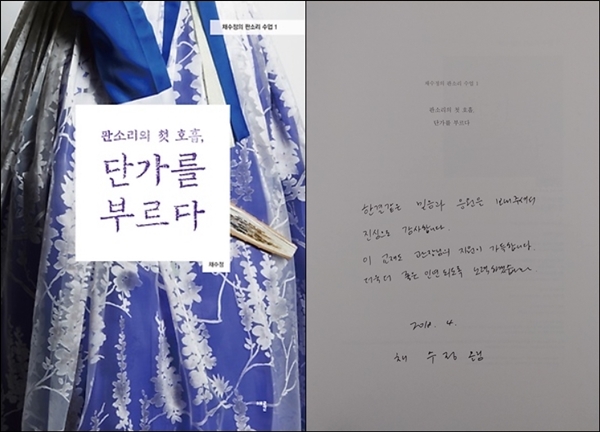 채수정의 판소리 수업 1
판소리의 첫 호흡,
단가를
부르다
채수정
채수정의 판소리 수업 1
판소리의 첫 호흡
단가를 부르다
한결같은 믿음과 응원을 보내주셔서
진심으로 감사합니다.
이 교재도 지원이 가득합니다.
더욱더 좋은 인연 되도록 노력하겠습니다.
4.
채 수 정